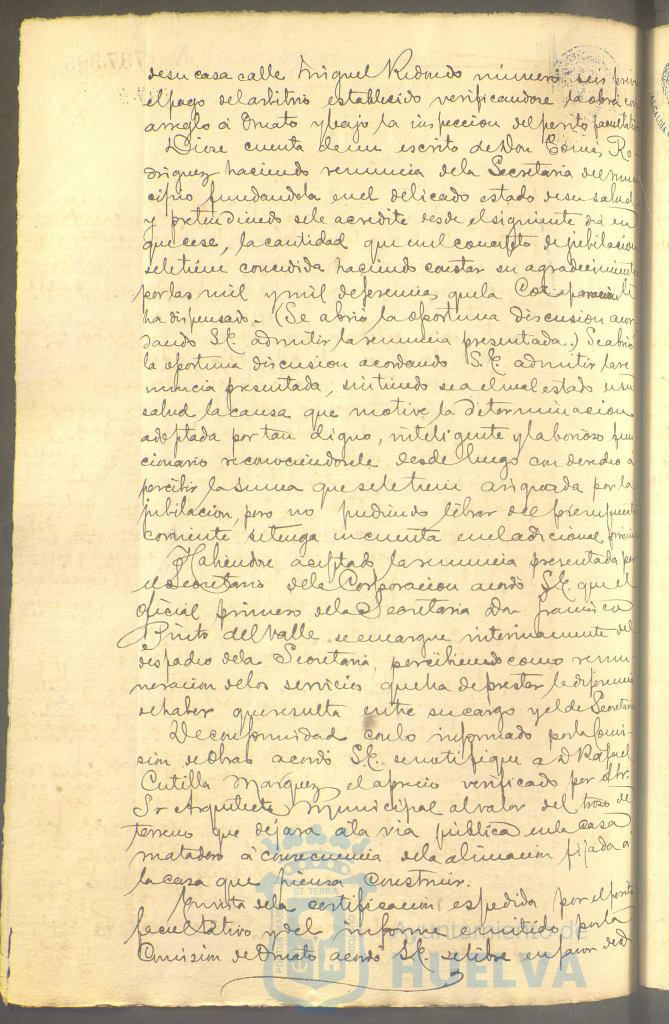 de su casa calle Miguel Redondo número seis previo
el pago del arbitrio establecido verificandose la obra con
arreglo á Ornato y bajo la inspeccion del perito facultativo
Diose cuenta de un escrito de Don Tomás Ro-
driguez haciendo renuncia de la Secretaria del muni
cipio fundandola en el delicado estado de su salud
y pretendiendo se le acredite desde el siguiente dia en
que cese, la cantidad que en el concepto de jubilacion
se le tiene concedida haciendo constar su agradecimiento
por las mil y mil deferencias que la Corporacion le
ha dispensado. (Se abrió la oportuna discusion acor
dando S.E. admitir la renuncia presentada.) Se abrió
la oportuna discusion acordando S.E. admitir la re
nuncia presentada, sintiendo sea el mal estado en su
salud la causa que motive la determinacion
adoptada por tan digno, inteligente y laborioso fun
cionario reconociendosele desde luego con derecho á
percibir la suma que se le tiene asignada por la
jubilacion, pero no pudiendo librar del presupuesto
corriente se tenga en cuenta en el adicional próximo
Habiendose aceptado la renuncia presentada por
el Secretario de la Corporacion acordó S.E. que el
oficial primero de la Secretaria Don Francisco
Pinto del Valle se encargue interinamente del
despacho de la Secretaria, percibiendo como remu-
neracion de los servicios que ha de prestar la diferencia
de haber que resulta entre su cargo y el de Secretario
De conformidad con lo informado por la Comi
sion de Obras acordó S.E. se notifique a D. Rafael
Cutilla Marquez el aprecio verificado por el
Sr Arquitecto Municipal al valor del trozo de
terreno que dejara á la via publica en la casa
matadero á consecuencia de la alineacion fijada a
la casa que piensa construir.
En vista de la certificacion espedida por el perito
facultativo y del informe emitido por la
Comision de Ornato acordó S.E. se libre en favor de D.
Ayuntamiento de
HUELVA